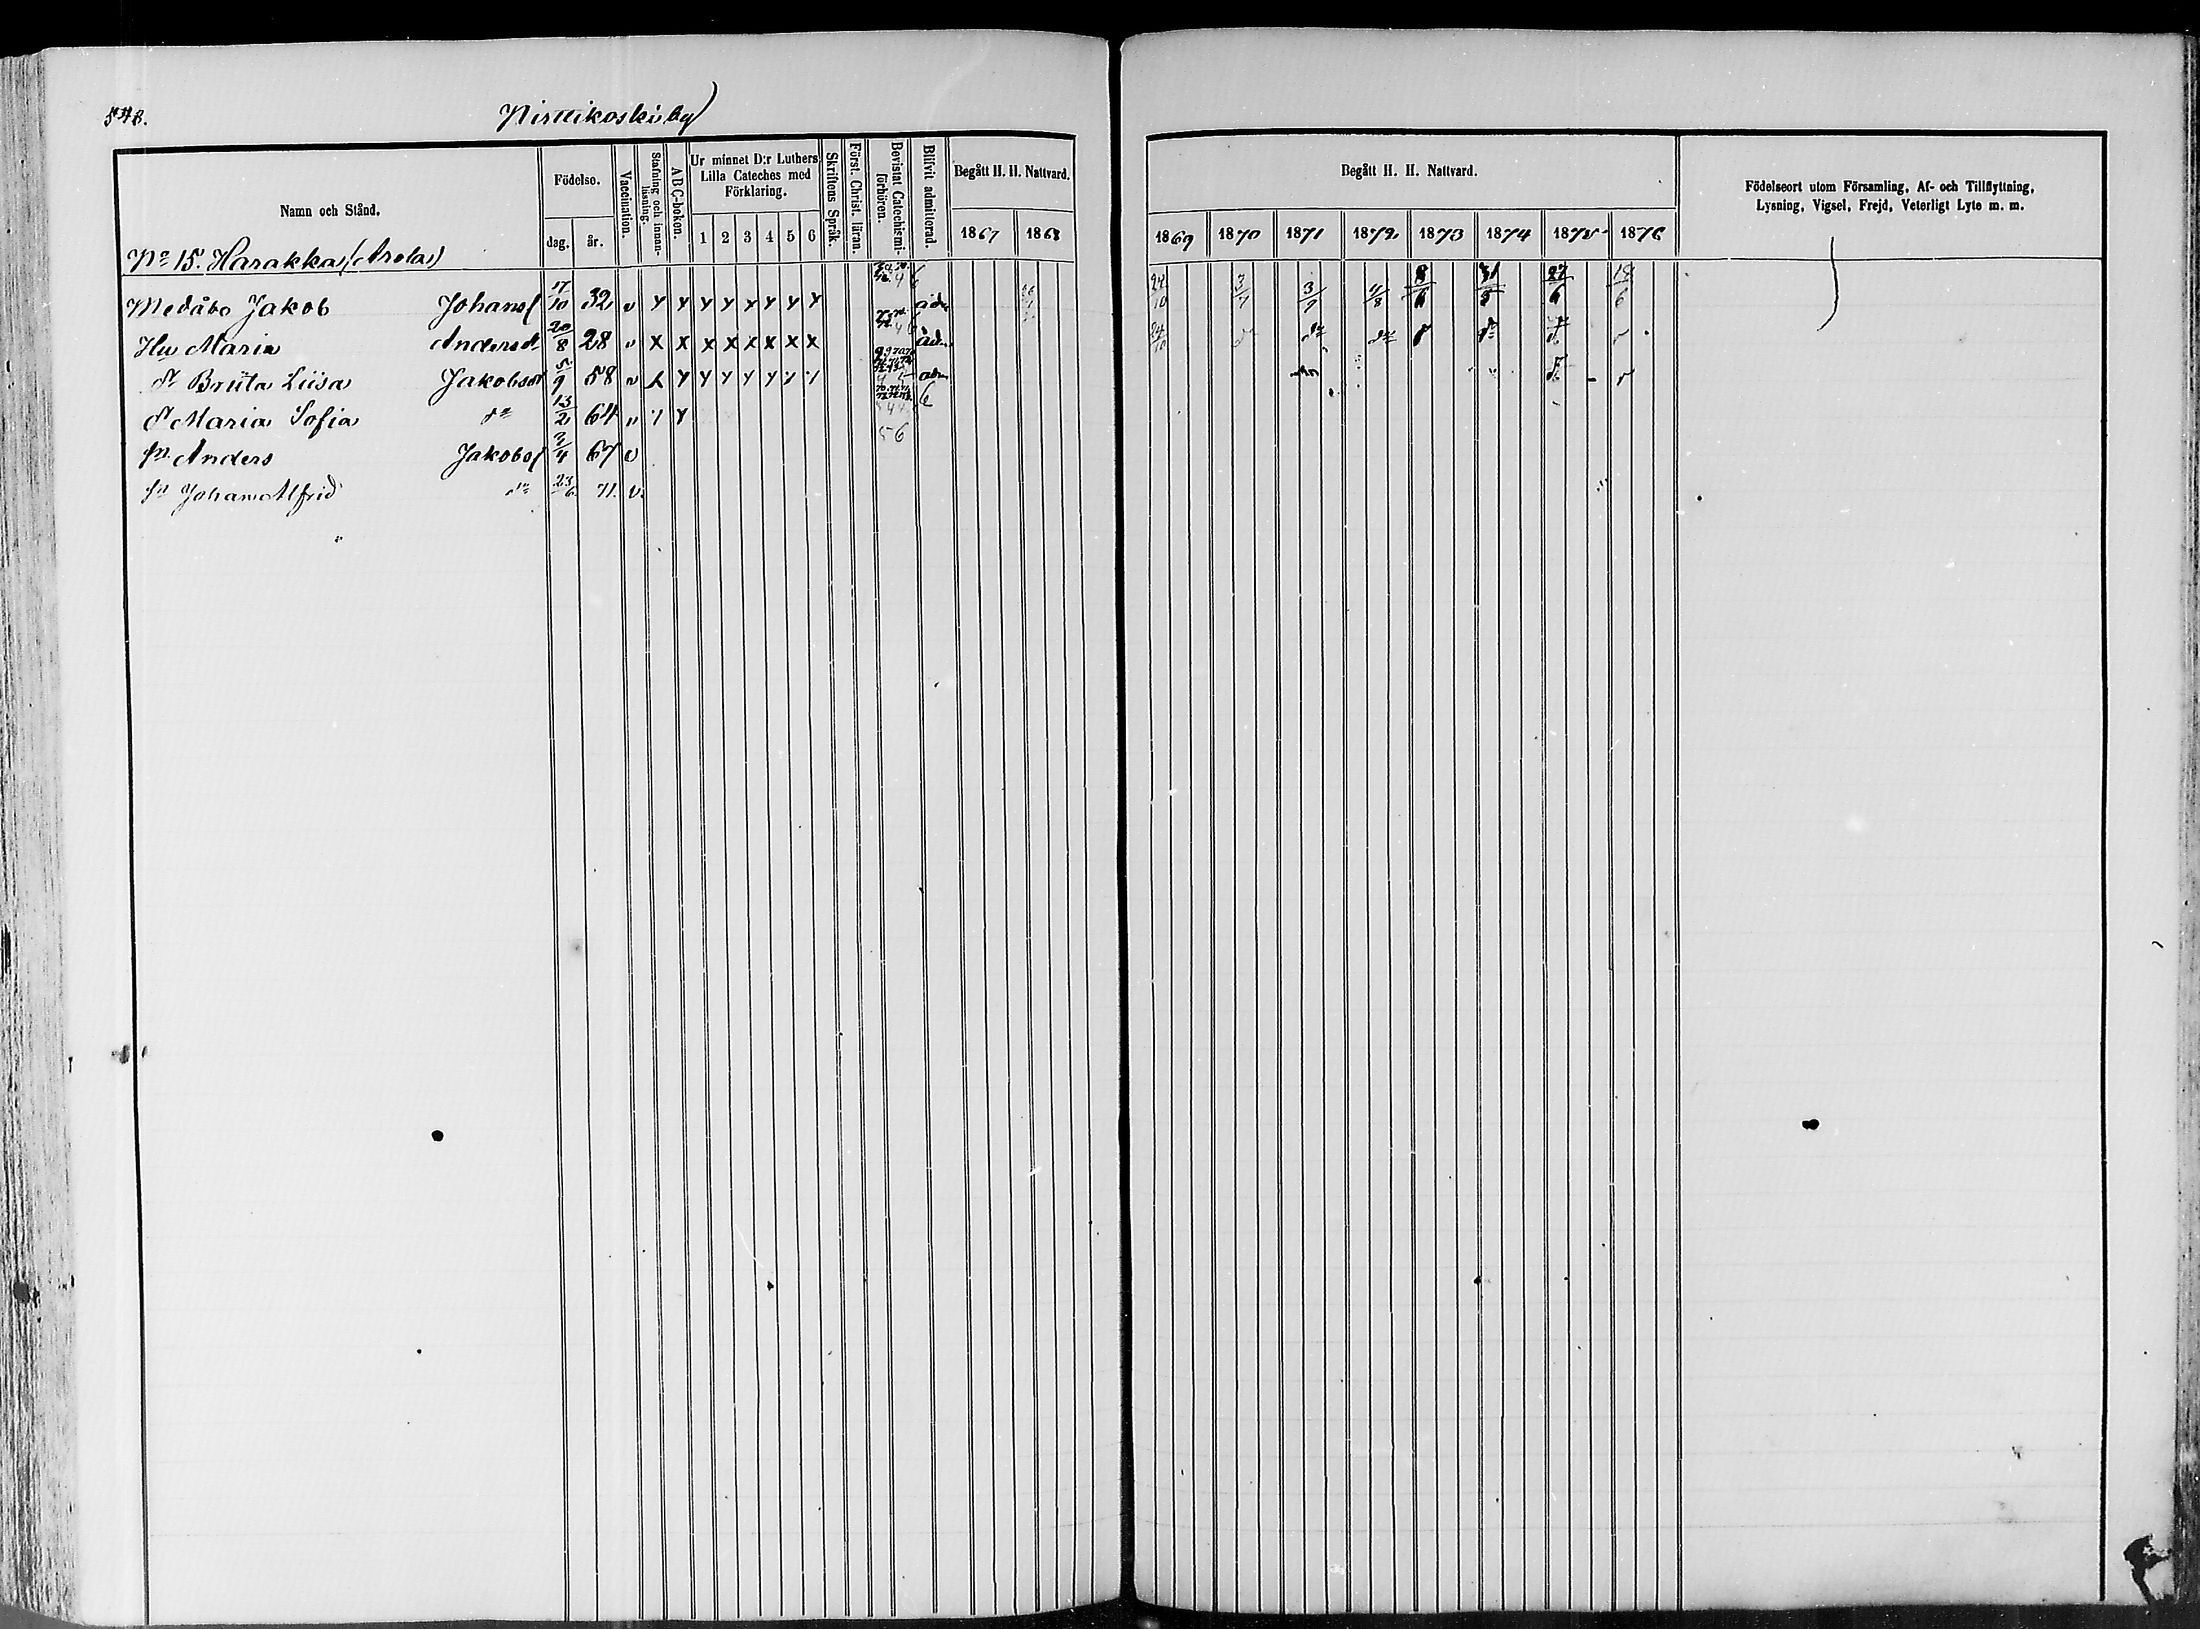 548. Nirttikoski by
Namn och Stånd.
Födelse.
dag. år.
Vaccination.
Stafning och innanläsning.
ABC-boken.
Ur minnet D:r Luthers Lilla Cateches med Förklaring.
1 2 3 4 5 6
Skriftens Språk.
Först. Christ. läran.
Bevistat Catechismiförhören.
Blifvit admitterad.
Begått H. H. Nattvard.
1867 1868
Begått H. H. Nattvard.
1869 1870 1871 1872 1873 1874 1875 1876
Födelseort utom Församling, Af- och Tillflyttning,
Lysning, Vigsel, Frejd, Veterligt Lyte m. m.
No 15. Harakka (Arola)
Medåbo Jakob Johans 17/10 32 v Y Y Y Y Y Y Y Y 24/10 3/7 3/9 4/8 8/6 31/5 27/6 18/6
Hu Maria Andersdr 20/8 28 v X X X X X X X X
dr Brita Liisa Jakobsdr 5/9 58 v
dr Maria Sofia do 13/2 64 v
sn Anders Jakobs 3/4 67 v
sn Johan Alfrid do 23/6 71. v.